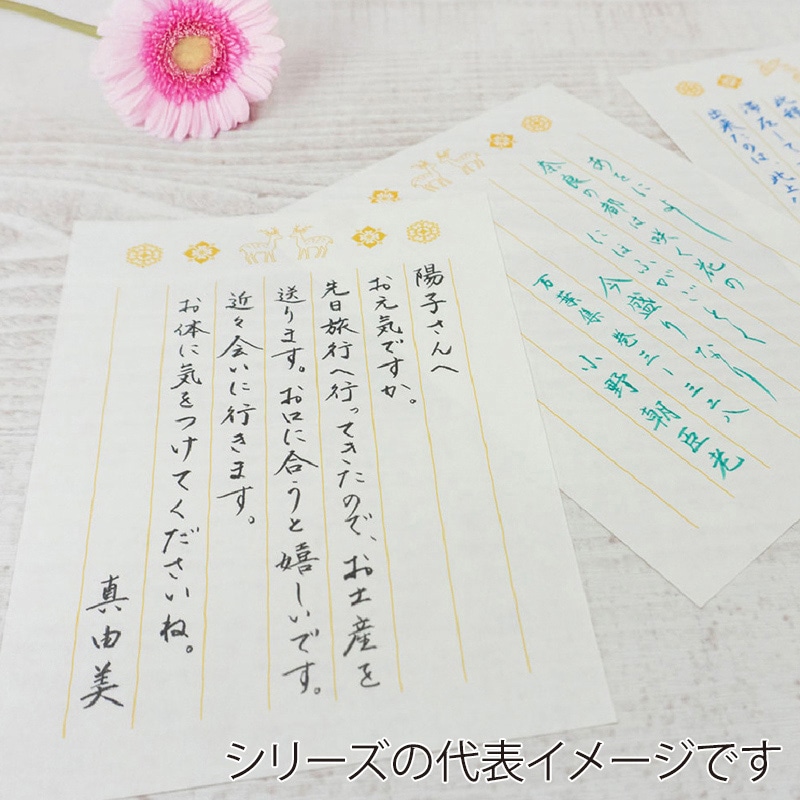 陽子さんへ
お元気ですか。
先日旅行へ行ってきたので、お土産を
送ります。お口に合うと嬉しいです。
近々会いに行きます。
お体に気をつけてくださいね。
真由美
あをによし
奈良の都は咲く花の
にほふがごとく
今盛りなり
万葉集 巻三・三二八
小野朝臣老
出来たのは、北上
シリーズの代表イメージです